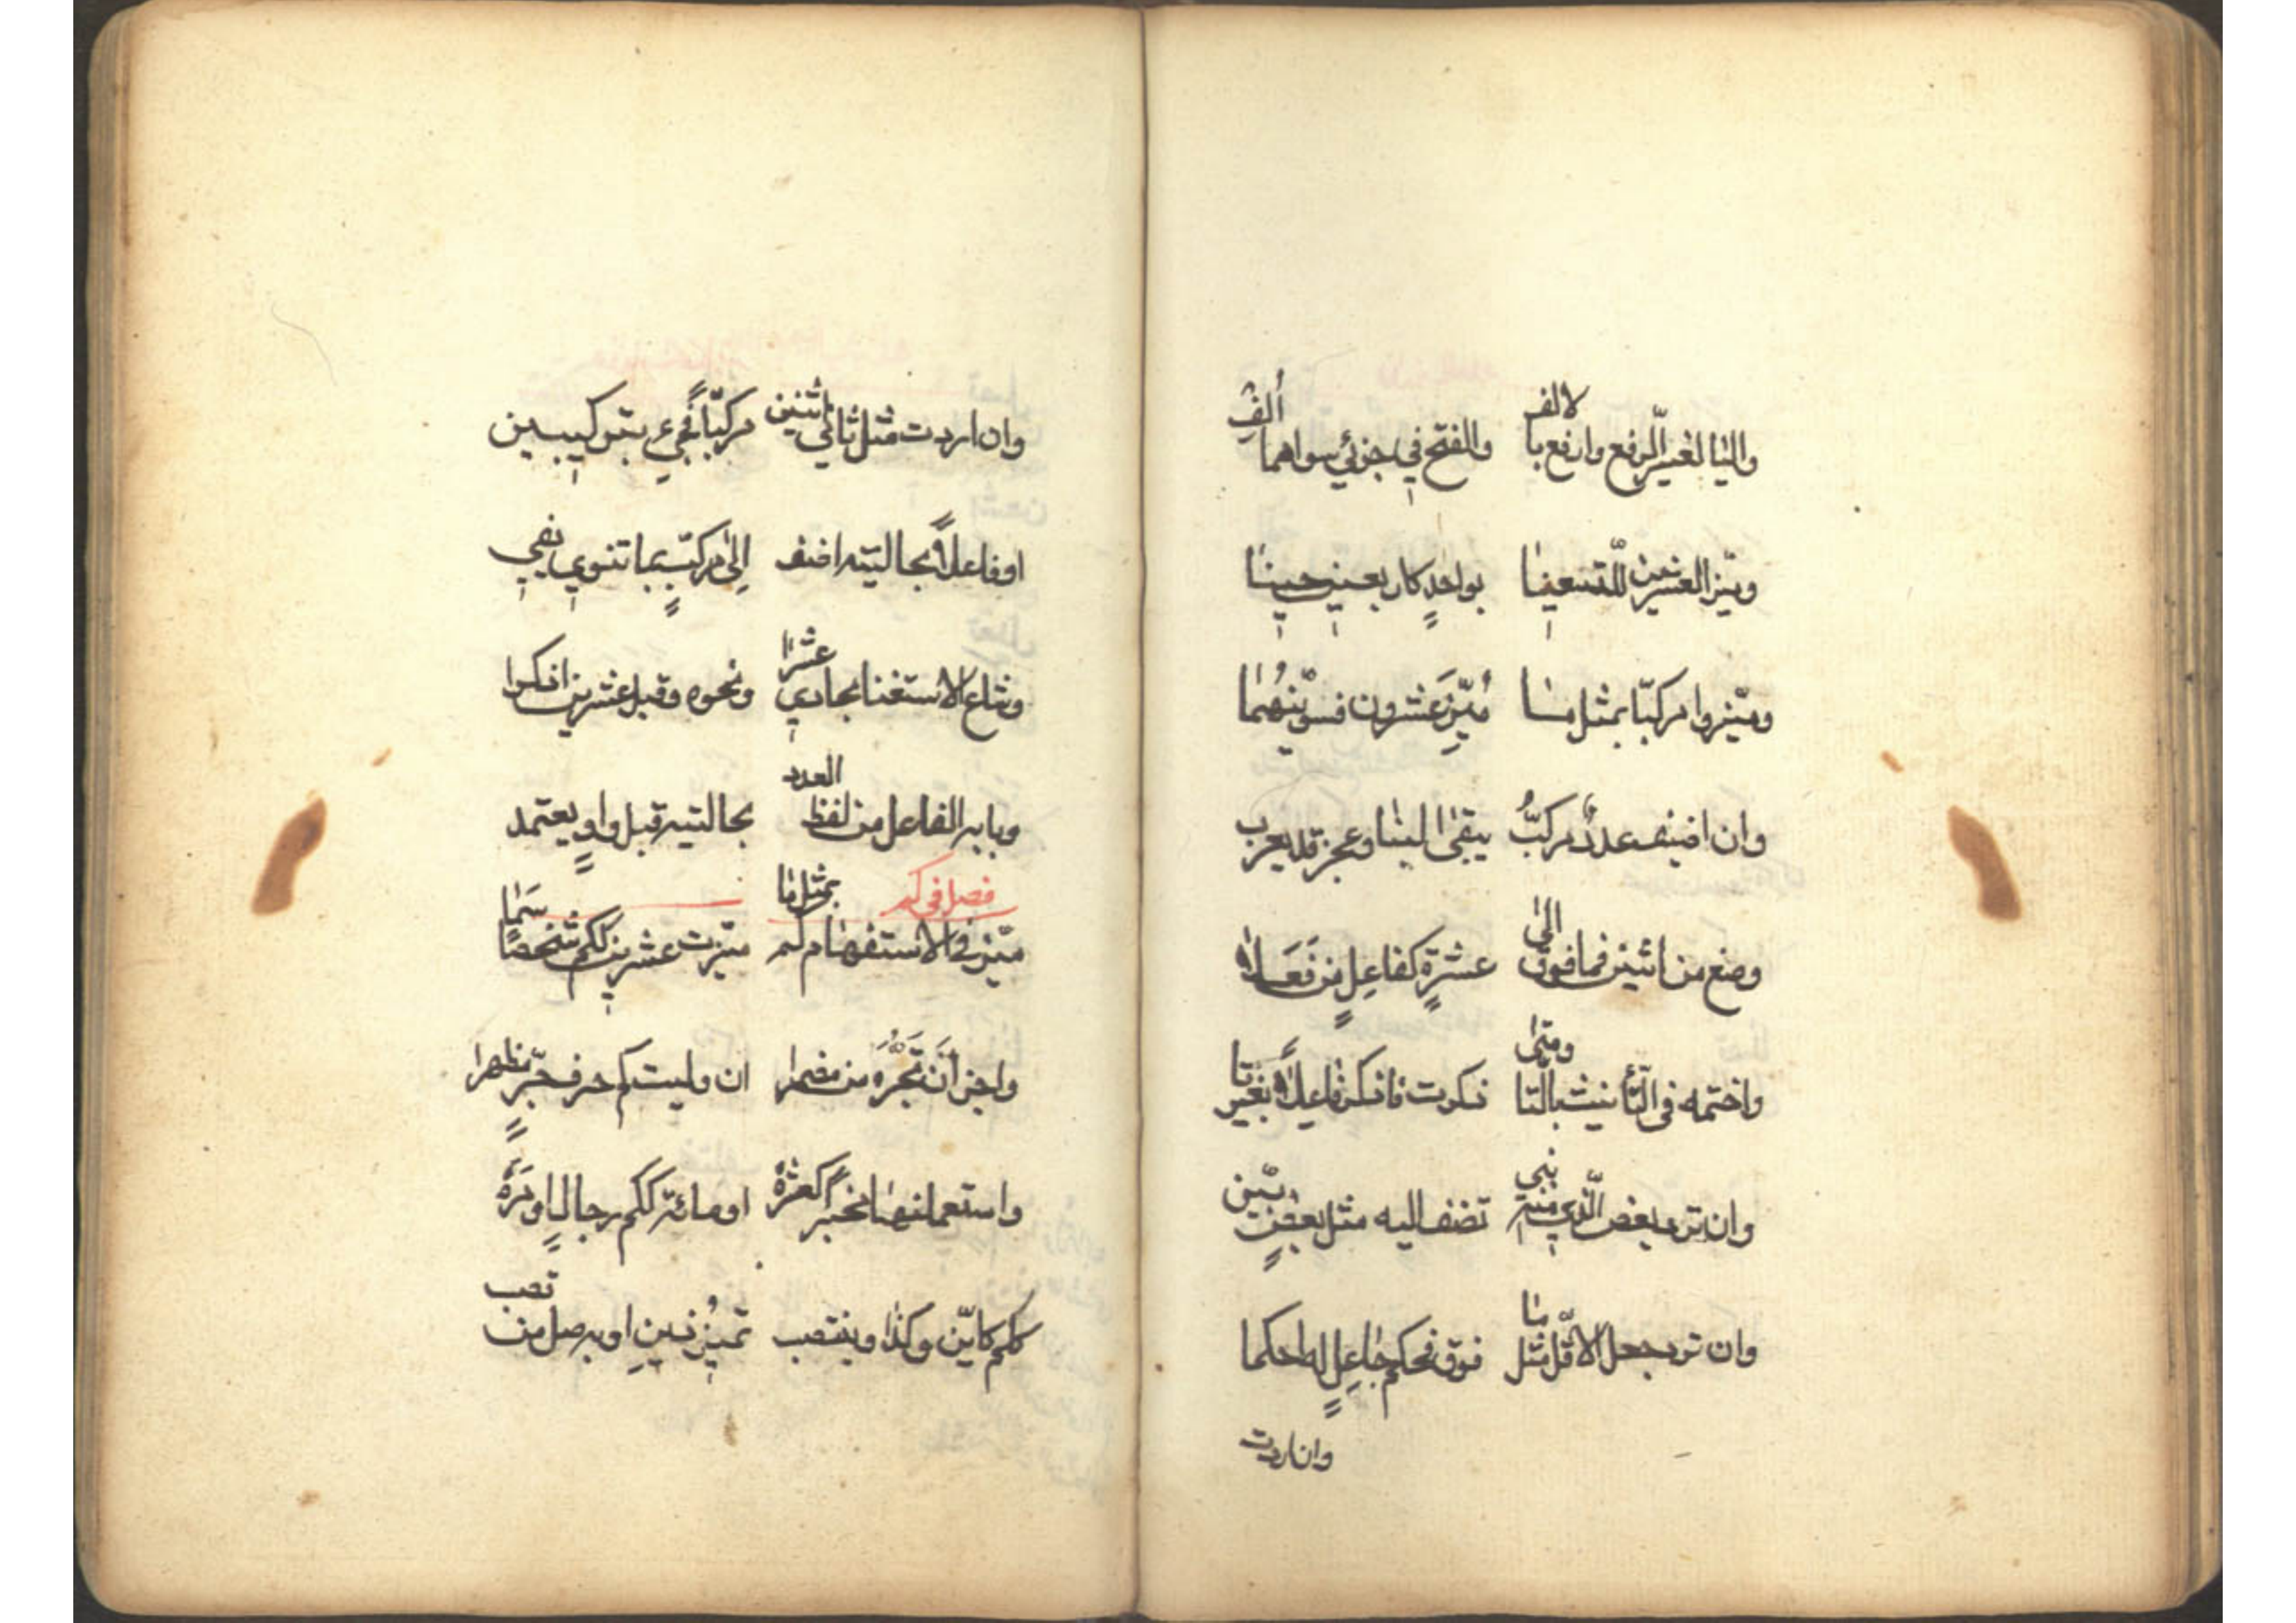 واليا لغير الرفع وارفع بالالف والفتح في جزئي سواهما ألف
وميّز العشرين للتسعينا بواحدٍ كاربعين حينا
وميّزوا مركبّا بمثل ما مُيّز عشرون فسوّينهُما
وان اضيف عددٌ مركبُّ يبقى البنا وعجز قد يعرب
وصغ من اثنين فما فوق الى عشرةٍ كفاعلٍ من فَعَلا
واختمه في التّأنيث بالتّا ومتى ذكرت فاذكر فاعلاً بغير تا
وان ترد بعض الّذي منه بني تضف اليه مثل بعضٍ بيّن
وان ترد جعل الاقّل مثل ما فوق فحكم جاعلٍ له احكما
وان اردت
وان اردت مثل ثاني اثنين مركبّاً فجيء بتركيبين
او فاعلاً بحالتيه اضف الى مركبٍّ بما تنوي يفي
وشاع الاستغنا بحادي عشرا ونحوه وقبل عشرين اذكرا
وبابه الفاعل من لفظ العدد بحالتيه قبل واوٍ يعتمد
فصل في كم
ميّز في الاستفهام كم بمثل ما ميّزت عشرين ككم شخصًا سَما
واجز اَن تَجُرَّه من مضمرا ان وليت كم حرف جرٍّ مظهرا
واستعملنها مخبرًا كعشرة او مائة ككم رجالٍ او مَرَهْ
ككم كايّن وكذا وينتصب تمييز ذين او به صل من تصب